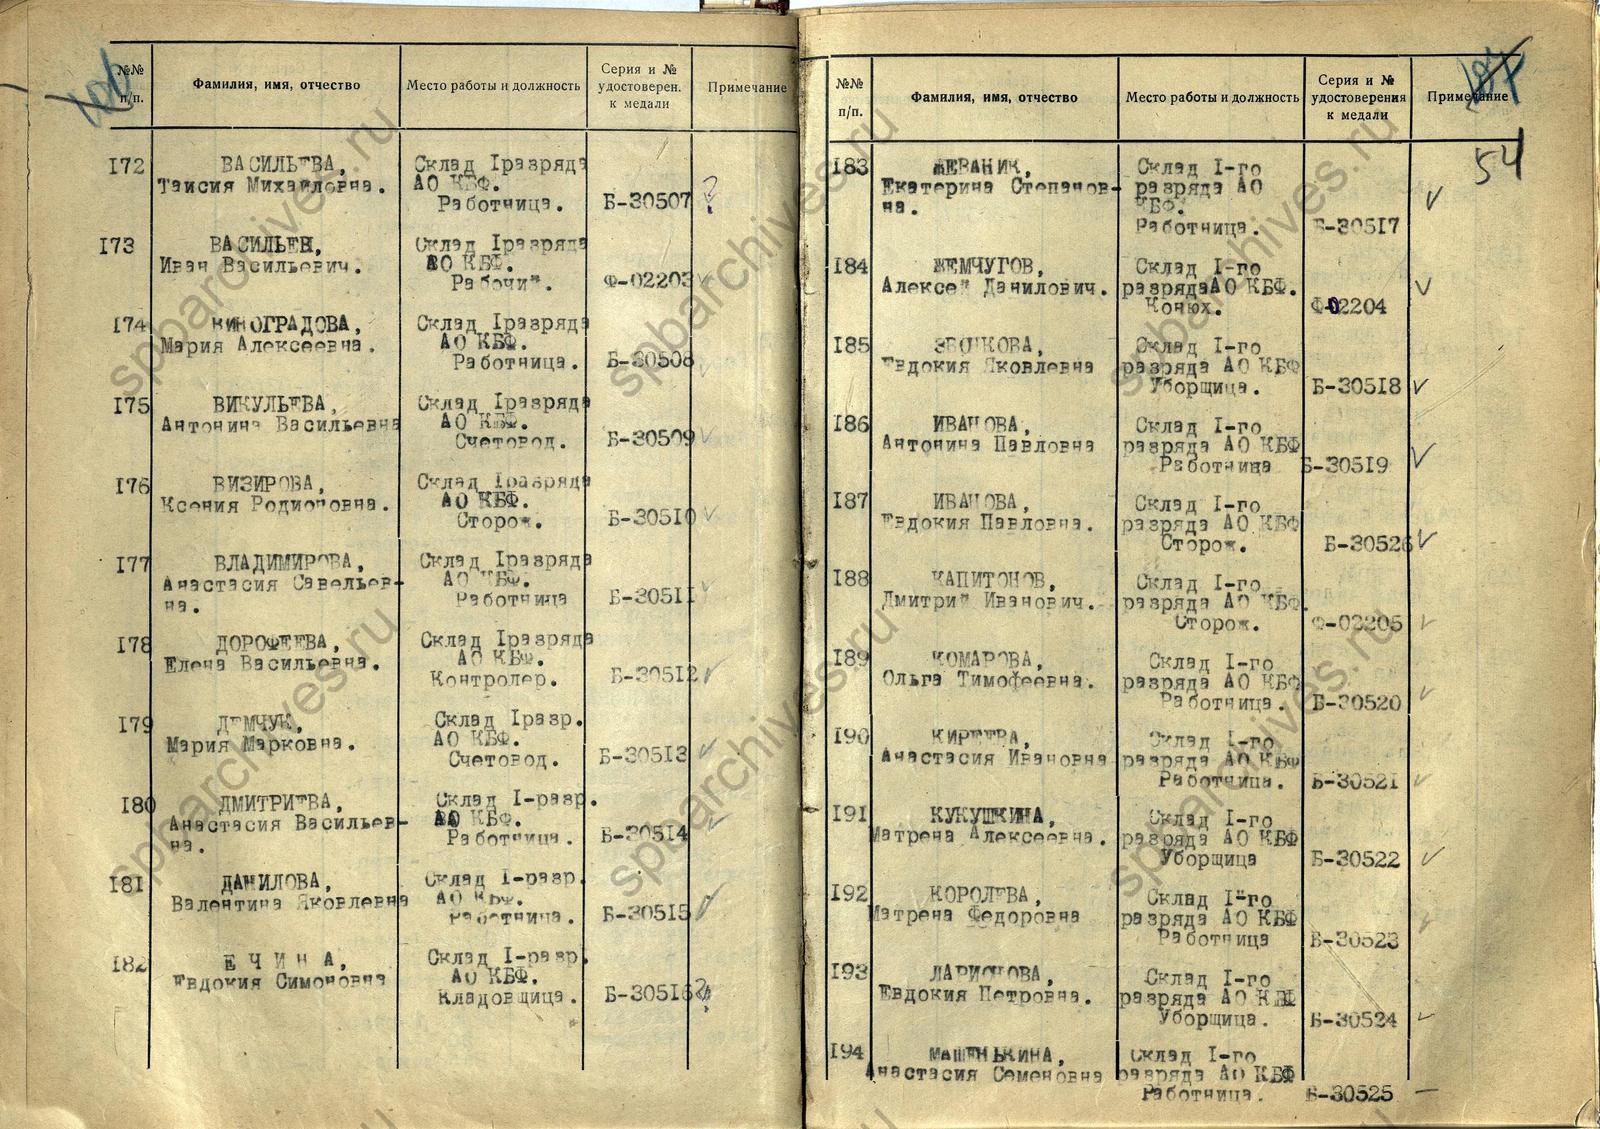 №№
п/п.
Фамилия, имя, отчество
Место работы и должность
Серия и №
удостоверен.
к медали
Примечание
172
ВАСИЛЬЕВА,
Таисия Михайловна.
Склад Iразряда
АО КБФ.
Работница.
Б-30507
?
173
ВАСИЛЬЕВ,
Иван Васильевич.
Склад Iразряда
АО КБФ.
Рабочий.
Ф-02203
174
ВИНОГРАДОВА,
Мария Алексеевна.
Склад Iразряда
АО КБФ.
Работница.
Б-30508
175
ВИКУЛЬЕВА,
Антонина Васильевна
Склад Iразряда
АО КБФ.
Счетовод.
Б-30509
176
ВИЗИРОВА,
Ксения Родионовна.
Склад Iразряда
АО КБФ.
Сторож.
Б-30510
177
ВЛАДИМИРОВА,
Анастасия Савельев-
на.
Склад Iразряда
АО КБФ.
Работница
Б-30511
178
ДОРОФЕЕВА,
Елена Васильевна.
Склад Iразряда
АО КБФ.
Контролер.
Б-30512
179
ДЕМЧУК,
Мария Марковна.
Склад Iразр.
АО КБФ.
Счетовод.
Б-30513
180
ДМИТРИЕВА,
Анастасия Васильев-
на.
Склад I-разр.
АО КБФ.
Работница.
Б-30514
181
ДАНИЛОВА,
Валентина Яковлевна
Склад I-разр.
АО КБФ.
Работница.
Б-30515
182
Е Ч И Н А,
Евдокия Симоновна
Склад I-разр.
АО КБФ.
Кладовщица.
Б-30516
?
№№
п/п.
Фамилия, имя, отчество
Место работы и должность
Серия и №
удостоверения
к медали
Примечание
54
183
ЖЕВАНИК,
Екатерина Степанов-
на.
Склад I-го
разряда АО
КБФ.
Работница.
Б-30517
184
ЖЕМЧУГОВ,
Алексей Данилович.
Склад I-го
разрядаАО КБФ.
Конюх.
Ф-02204
185
ЗВОНКОВА,
Евдокия Яковлевна
Склад I-го
разряда АО КБФ
Уборщица.
Б-30518
186
ИВАНОВА,
Антонина Павловна
Склад I-го
разряда АО КБФ
Работница
Б-30519
187
ИВАНОВА,
Евдокия Павловна.
Склад I-го
разряда АО КБФ
Сторож.
Б-30526
188
КАПИТОНОВ,
Дмитрий Иванович.
Склад I-го
разряда АО КБФ.
Сторож.
Ф-02205
189
КОМАРОВА,
Ольга Тимофеевна.
Склад I-го
разряда АО КБФ
Работница.
Б-30520
190
КИРЕЕВА,
Анастасия Ивановна
Склад I-го
разряда АО КБФ
Работница.
Б-30521
191
КУКУШКИНА,
Матрена Алексеевна.
Склад I-го
разряда АО КБФ
Уборщица
Б-30522
192
КОРОЛЕВА,
Матрена Федоровна
Склад I-го
разряда АО КБФ
Работница
Б-30523
193
ЛАРИОНОВА,
Евдокия Петровна.
Склад I-го
разряда АО КБФ
Уборщица.
Б-30524
194
МАШЕНЬКИНА,
Анастасия Семеновна
Склад I-го
разряда АО КБФ
Работница.
Б-30525
spbarchives.ru